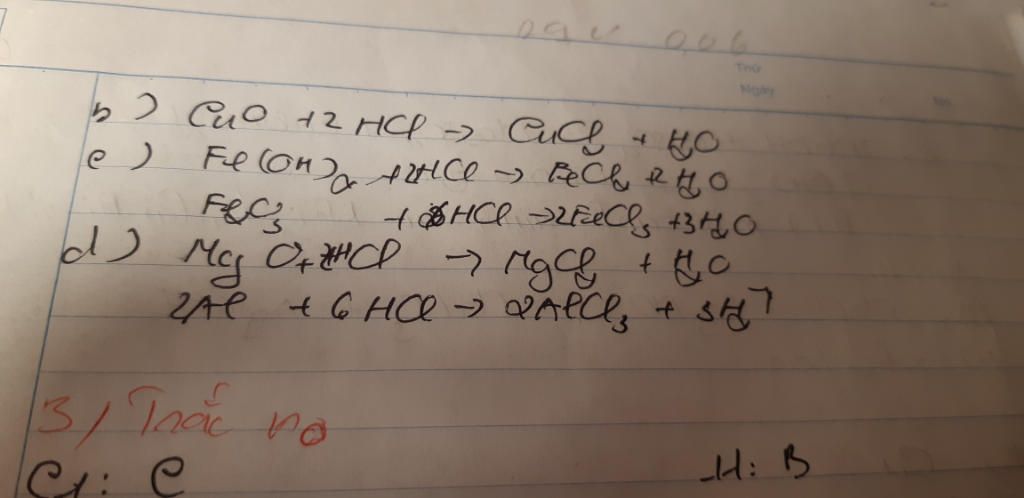 Thứ
Ngày
b) CuO + 2 HCl → CuCl₂ + H₂O
c) Fe(OH)₂ + 2HCl → FeCl₂ + 2 H₂O
+ 6HCl → 2FeCl₃ + 3H₂O
d) MgO + HCl → MgCl₂ + H₂O
2Al + 6 HCl → 2AlCl₃ + 3H₂↑
3/ Trắc no
C1: C H: B